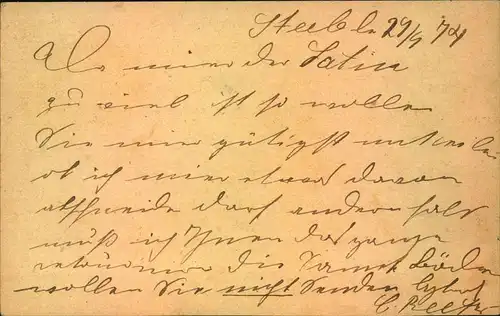 Steele 29/9 74
Da mir der Satin
zu viel ist so wollen
Sie mir gütigst mitteilen
ob ich mir etwas davon
abschneide darf andernfalls
muß ich Ihnen das ganze
retourniren die Samt Bänder
wollen Sie nicht senden
C.